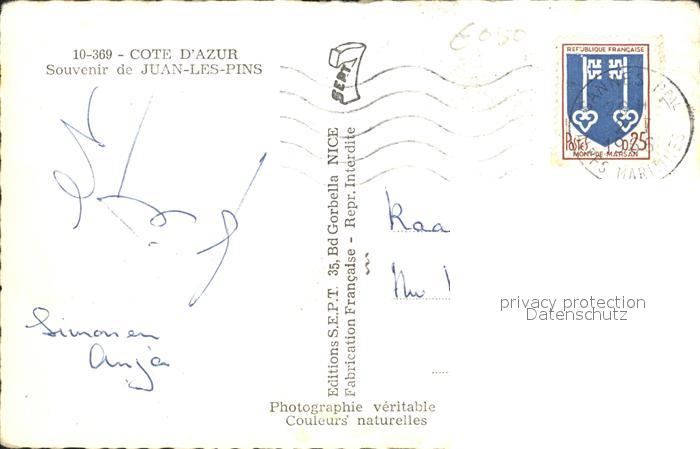 10-369 - COTE D'AZUR
Souvenir de JUAN-LES-PINS
Simon en
Anja
SEPT
Editions S.E.P.T. 35, Bd Gorbella NICE
Fabrication Française - Repr. Interdite
Photographie véritable
Couleurs naturelles
REPUBLIQUE FRANÇAISE
POSTES 0,25
MONT-DE-MARSAN
CANNES PPAL
MARITIMES
Kaa
privacy protection
Datenschutz